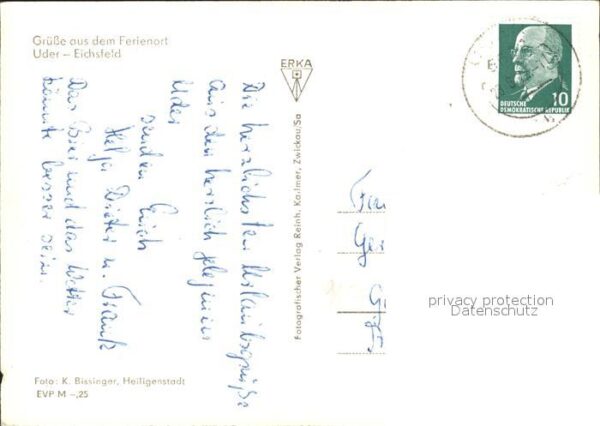 Grüße aus dem Ferienort
Uder – Eichsfeld
Die herzlichsten Urlaubsgrüße
aus dem herrlich gelegenen
Uder
senden Euch
Helja Dieter u. Frank
Das Bier und das Wetter
könnte besser sein.
Foto: K. Bissinger, Heiligenstadt
EVP M –,25
ERKA
Fotografischer Verlag Reinh. Kallmer, Zwickau/Sa
DEUTSCHE
DEMOKRATISCHE REPUBLIK
10
privacy protection
Datenschutz